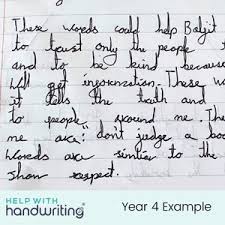 These words could help Baljit
to trust only the people
and to be kind because
Will get These w
it tells the truth and
to people around me. The
me are: "don't judge a boo
words are similar to the
show respect.
HELP WITH
handwriting
Year 4 Example